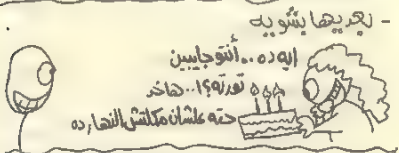 - بعديها بشويه
ايه ده.. أنتو جايبين
تورته؟!.. هاخد
حته علشان مكلتش النهارده